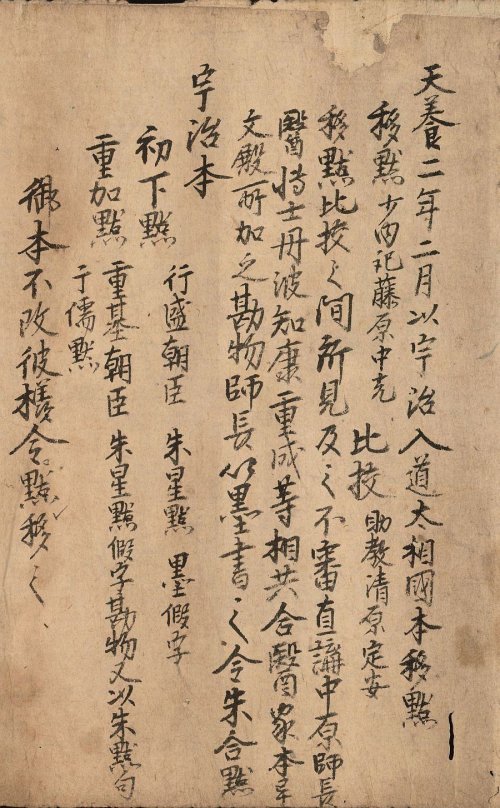 天養二年二月以宇治入道太相國本移點
移點少内記藤原中光 比挍助教清原定安
移點比挍之間所見及之不審直講中原師長
醫博士丹波知康重成等相共合醫家本畢
文殿所加之勘物師長以墨書之令朱合點
宇治本
初下點 行盛朝臣 朱星點 墨假字
重加點 重基朝臣 朱星點假字勘物又以朱點句
于儒點
御本不改彼樣令點移之